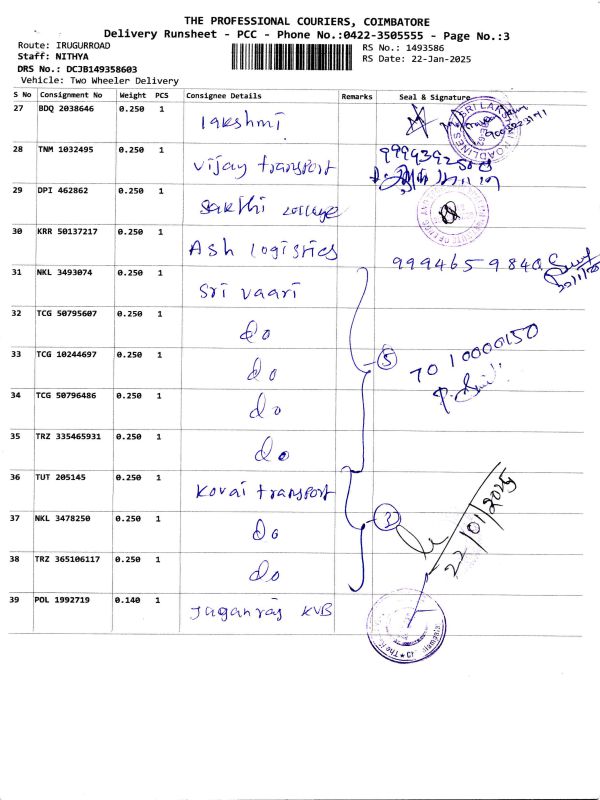 THE PROFESSIONAL COURIERS, COIMBATORE
Delivery Runsheet - PCC - Phone No.:0422-3505555 - Page No.:3
Route: IRUGURROAD
Staff: NITHYA
DRS No.: DCJB149358603
Vehicle: Two Wheeler Delivery
RS No.: 1493586
RS Date: 22-Jan-2025
S No Consignment No Weight PCS Consignee Details Remarks Seal & Signature
27 BDQ 2038646 0.250 1 lakshmi
28 TNM 1032495 0.250 1 vijay transport
29 DPI 462862 0.250 1 sakthi college
30 KRR 50137217 0.250 1 Ash logistics 9994659840
31 NKL 3493074 0.250 1 Sri vaari
32 TCG 50795607 0.250 1 do
33 TCG 10244697 0.250 1 do 5 7010000150
34 TCG 50796486 0.250 1 do
35 TRZ 335465931 0.250 1 do
36 TUT 205145 0.250 1 Kovai transport
37 NKL 3478250 0.250 1 do 3 22/01/2025
38 TRZ 365106117 0.250 1 do
39 POL 1992719 0.140 1 Juganraj KVB